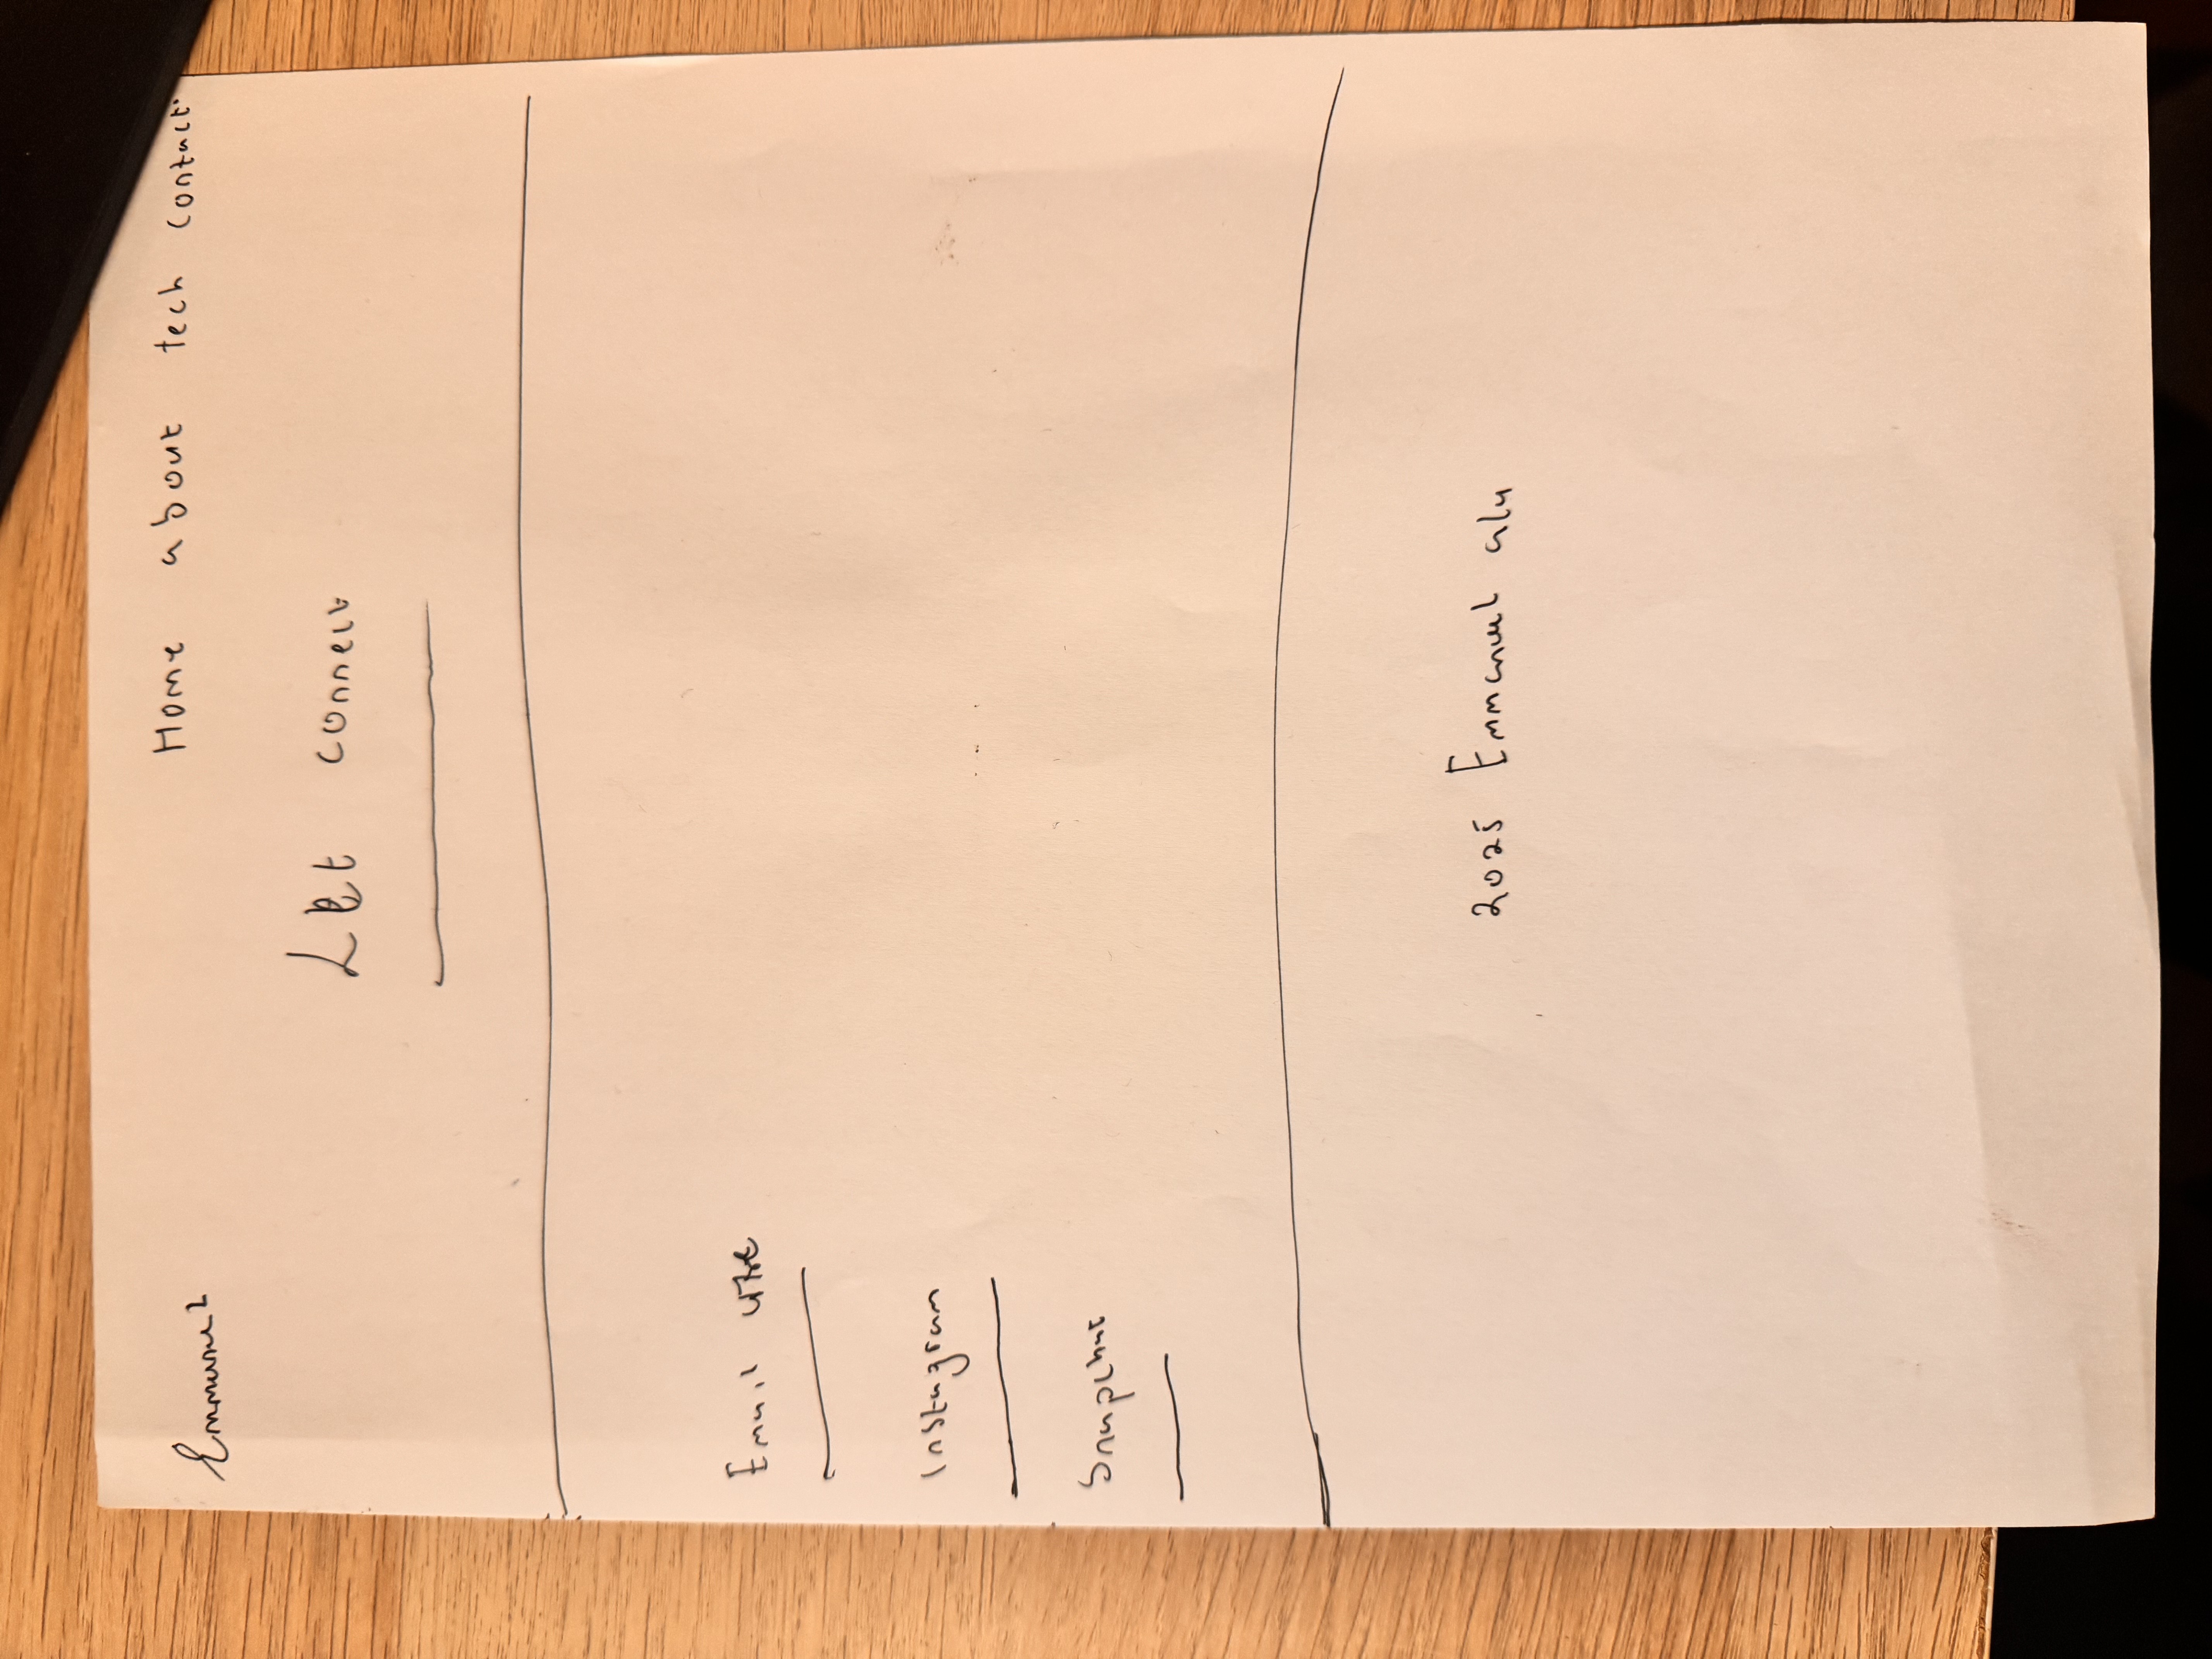 Emmanuel
Home about tech contact.
Let connect
Email
Instagram
Snapchat
2025 Emmanuel